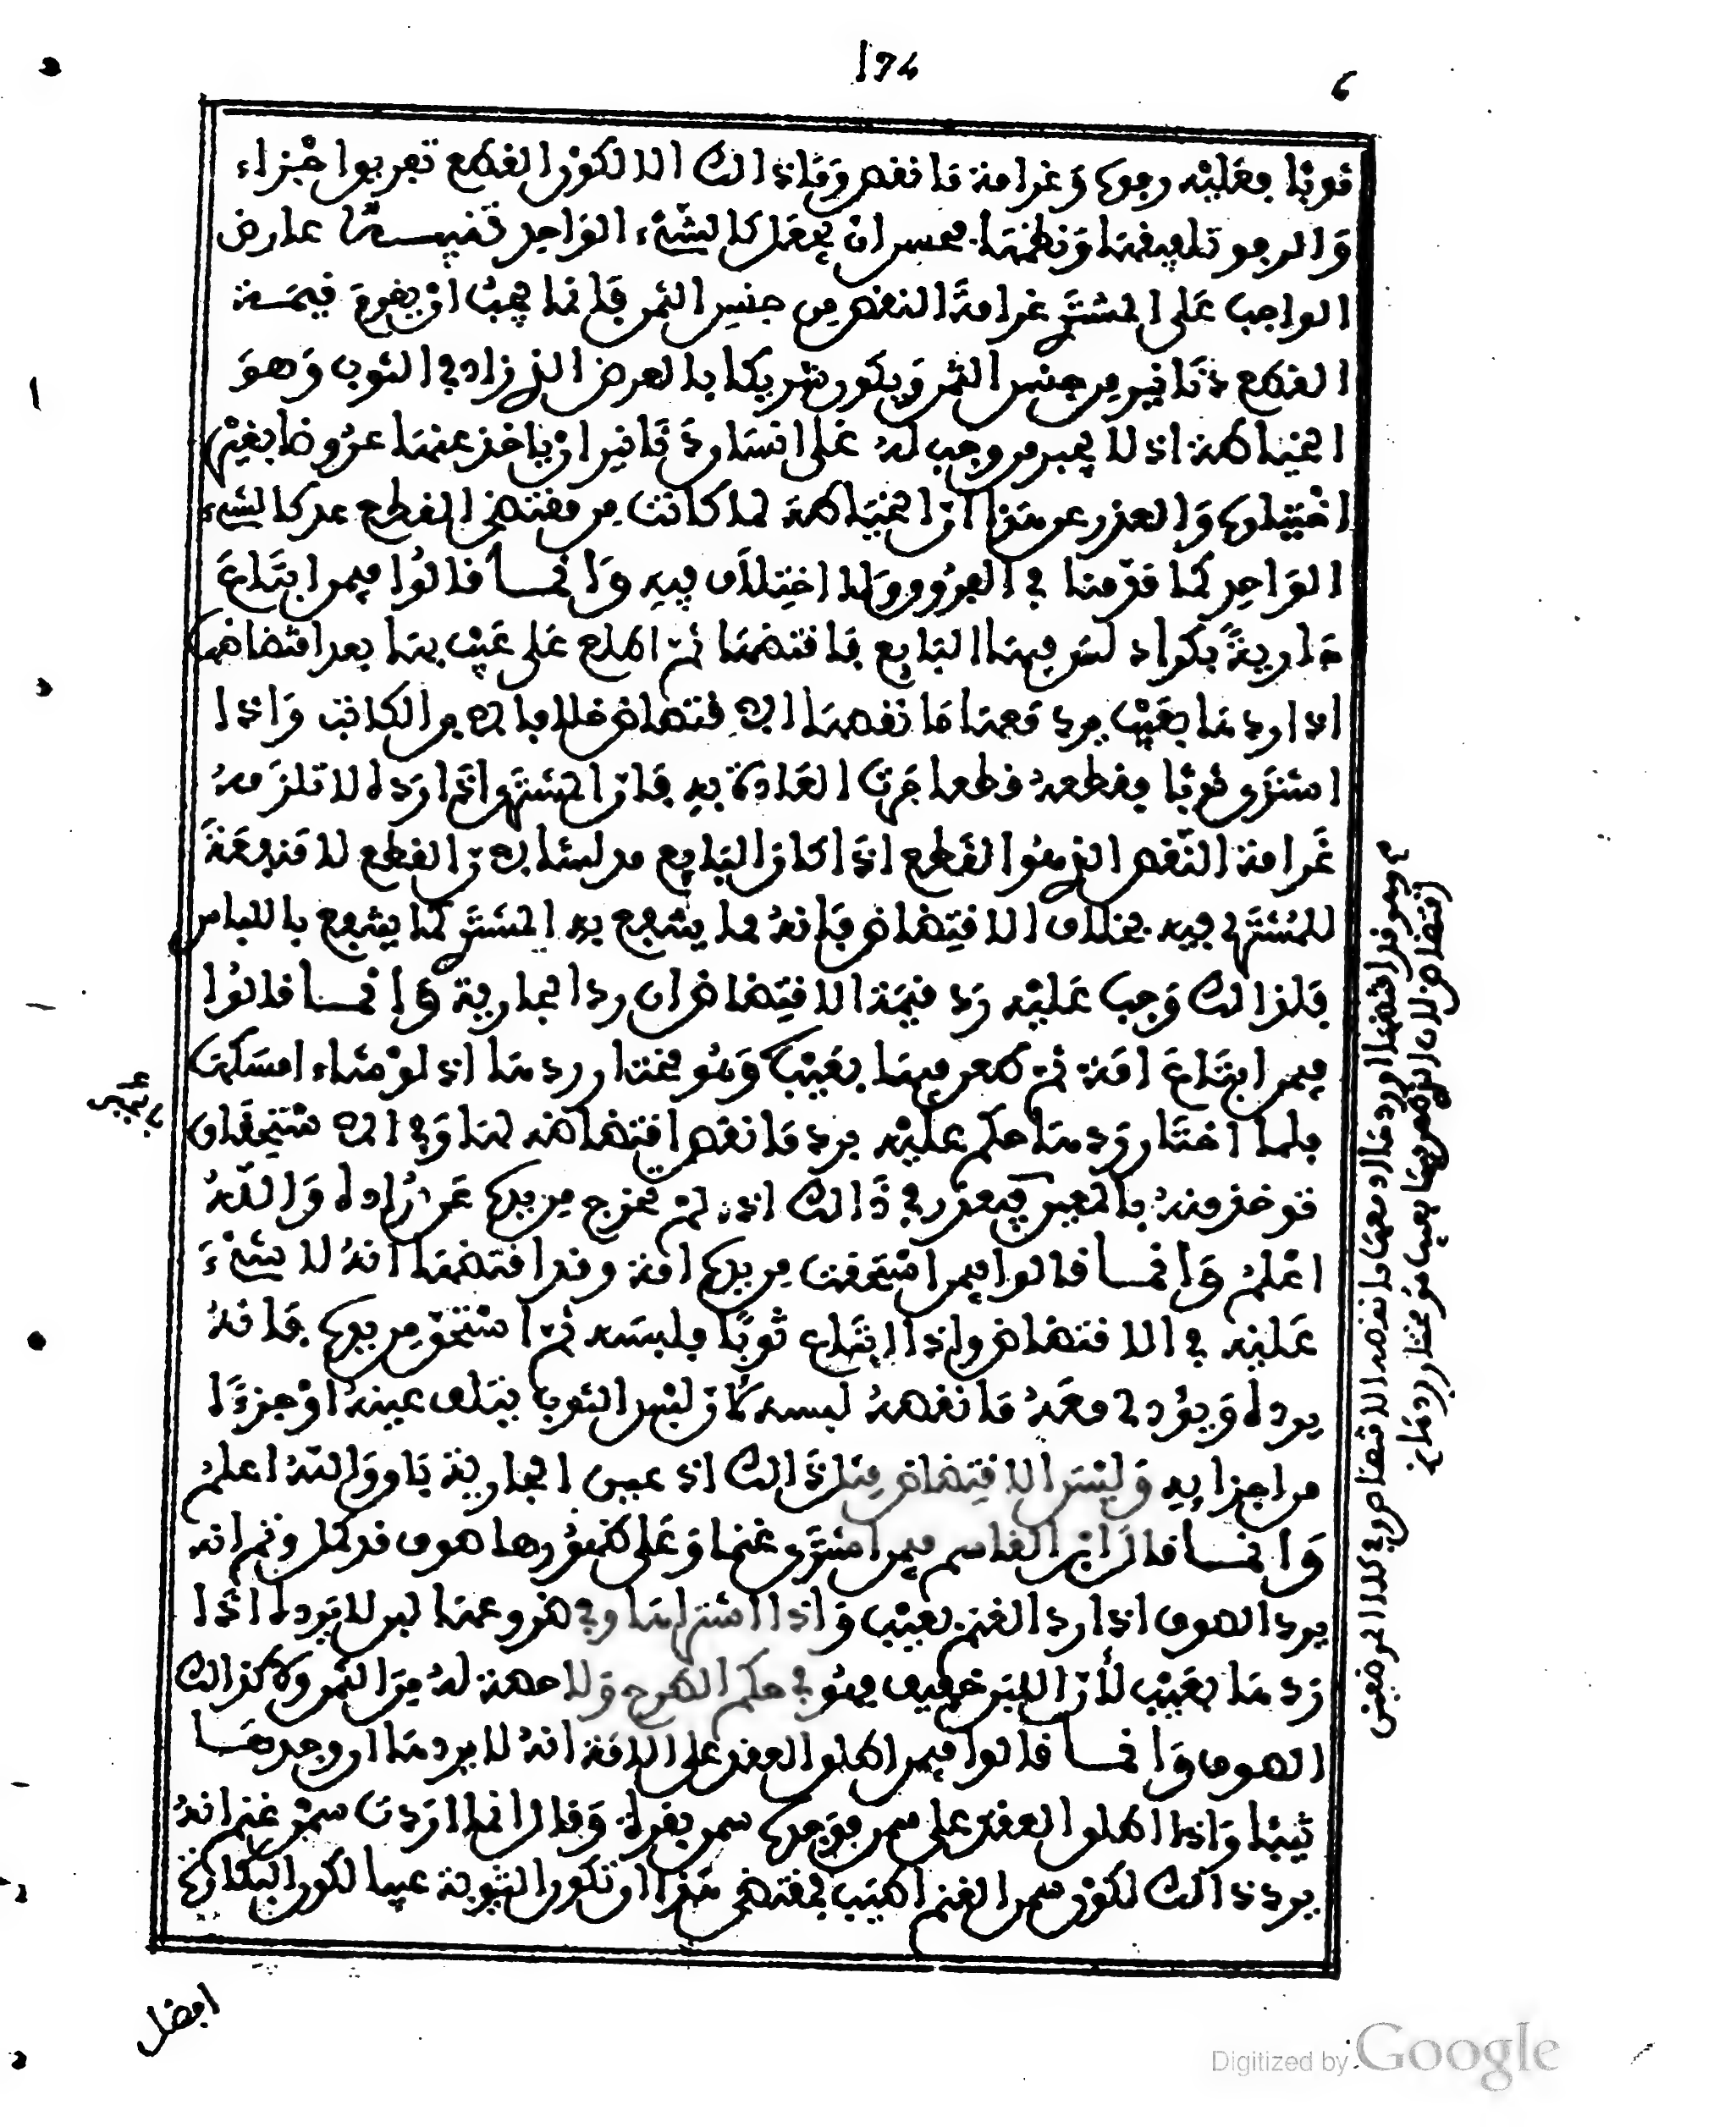 174
6
ثوبا فعليه رده وغرامة ما نقص وما ذالك الا لكون القطع تفريق اجزاء
والرد تلفيقها ونظمها فحسن ان يجعل كالشيء الواحد تنبيـــه عارض
الواجب على المشتري غرامة النقص من جنس الثمن فانما يجب ان يغرم قيمة
القطع دنانير من جنس الثمن ويكون شريكا بالعرض الذي زاد في الثوب وهو
الخياطة اذ لا يجبر من وجب له على انسان دنانير ان ياخذ عنها عروضا بغير
اختياره والعذر عن هذا ان الخياطة لما كانت من مقتضى القطع عد كالشيء
الواحد كما قدمنا في الفروق ولا اختلاف فيه وانمـــا قالوا فيمن ابتاع
جارية بكرا دلس فيها البايع فاقتضها ثم اطلع على عيب بها بعد اقتضاضها
اذا ردها بعيب يرد معها ما نقصها الافتضاض خلافا لابن الكاتب واذا
اشترى ثوبا فقطعه قطعا جرت العادة به فان المشتري اذا رده لا تلزمه
غرامة النقص الذي هو القطع اذا كان البايع مدلسا لان القطع لا منفعة
للمشتري فيه بخلاف الافتضاض فانه مما ينتفع به المشتري كما ينتفع باللباس
فلذالك وجب عليه رد قيمة الافتضاض ان رد الجارية وانمـــا قالوا
فيمن ابتاع امة ثم ظهر فيها بعيب وهو مختار ردها اذ لو شاء امسكها
فلما اختار ردها حكم عليه برد ما نقص افتضاضه لها وفي الاستحقاق
توخذ منه بالجبر فيعذر في ذالك اذ لم تخرج من يده عن ارادة والله
اعلم وانمـــا قالوا فيمن استحقت من يده امة وقد افتضها انه لا شيء
عليه في الافتضاض واذا ابتاع ثوبا فلبسه ثم استحق من يده فانه
يرده ويؤدي معه ما نقصه لبسه لان لبس الثوب يتلف عينه او جزءا
من اجزايه وليس الافتضاض مثل ذالك اذ عين الجارية باق والله اعلم
وانمـــا قال ابن القاسم فيمن اشترى غنما وعلى ظهورها صوف قد كمل ونم انه
يرد الصوف اذا رد الغنم بعيب واذا اشتراها وفي ضروعها لبن لا يرده اذا
ردها بعيب لان اللبن خفيف فهو في حكم الطرح ولا حصة له من الثمن ولا كذالك
الصوف وانمـــا قالوا فيمن اطلق العقد على الامة انه لا يردها ان وجدهـــا
ثيبا واذا اطلق العقد على سمن فوجده سمن بقر وقال انما اردت سمن غنم انه
يرد ذالك لكون سمن الغنم اطيب فمقتضى هذا ان تكون الثيوبة عيبا لكون البكارة
افضل